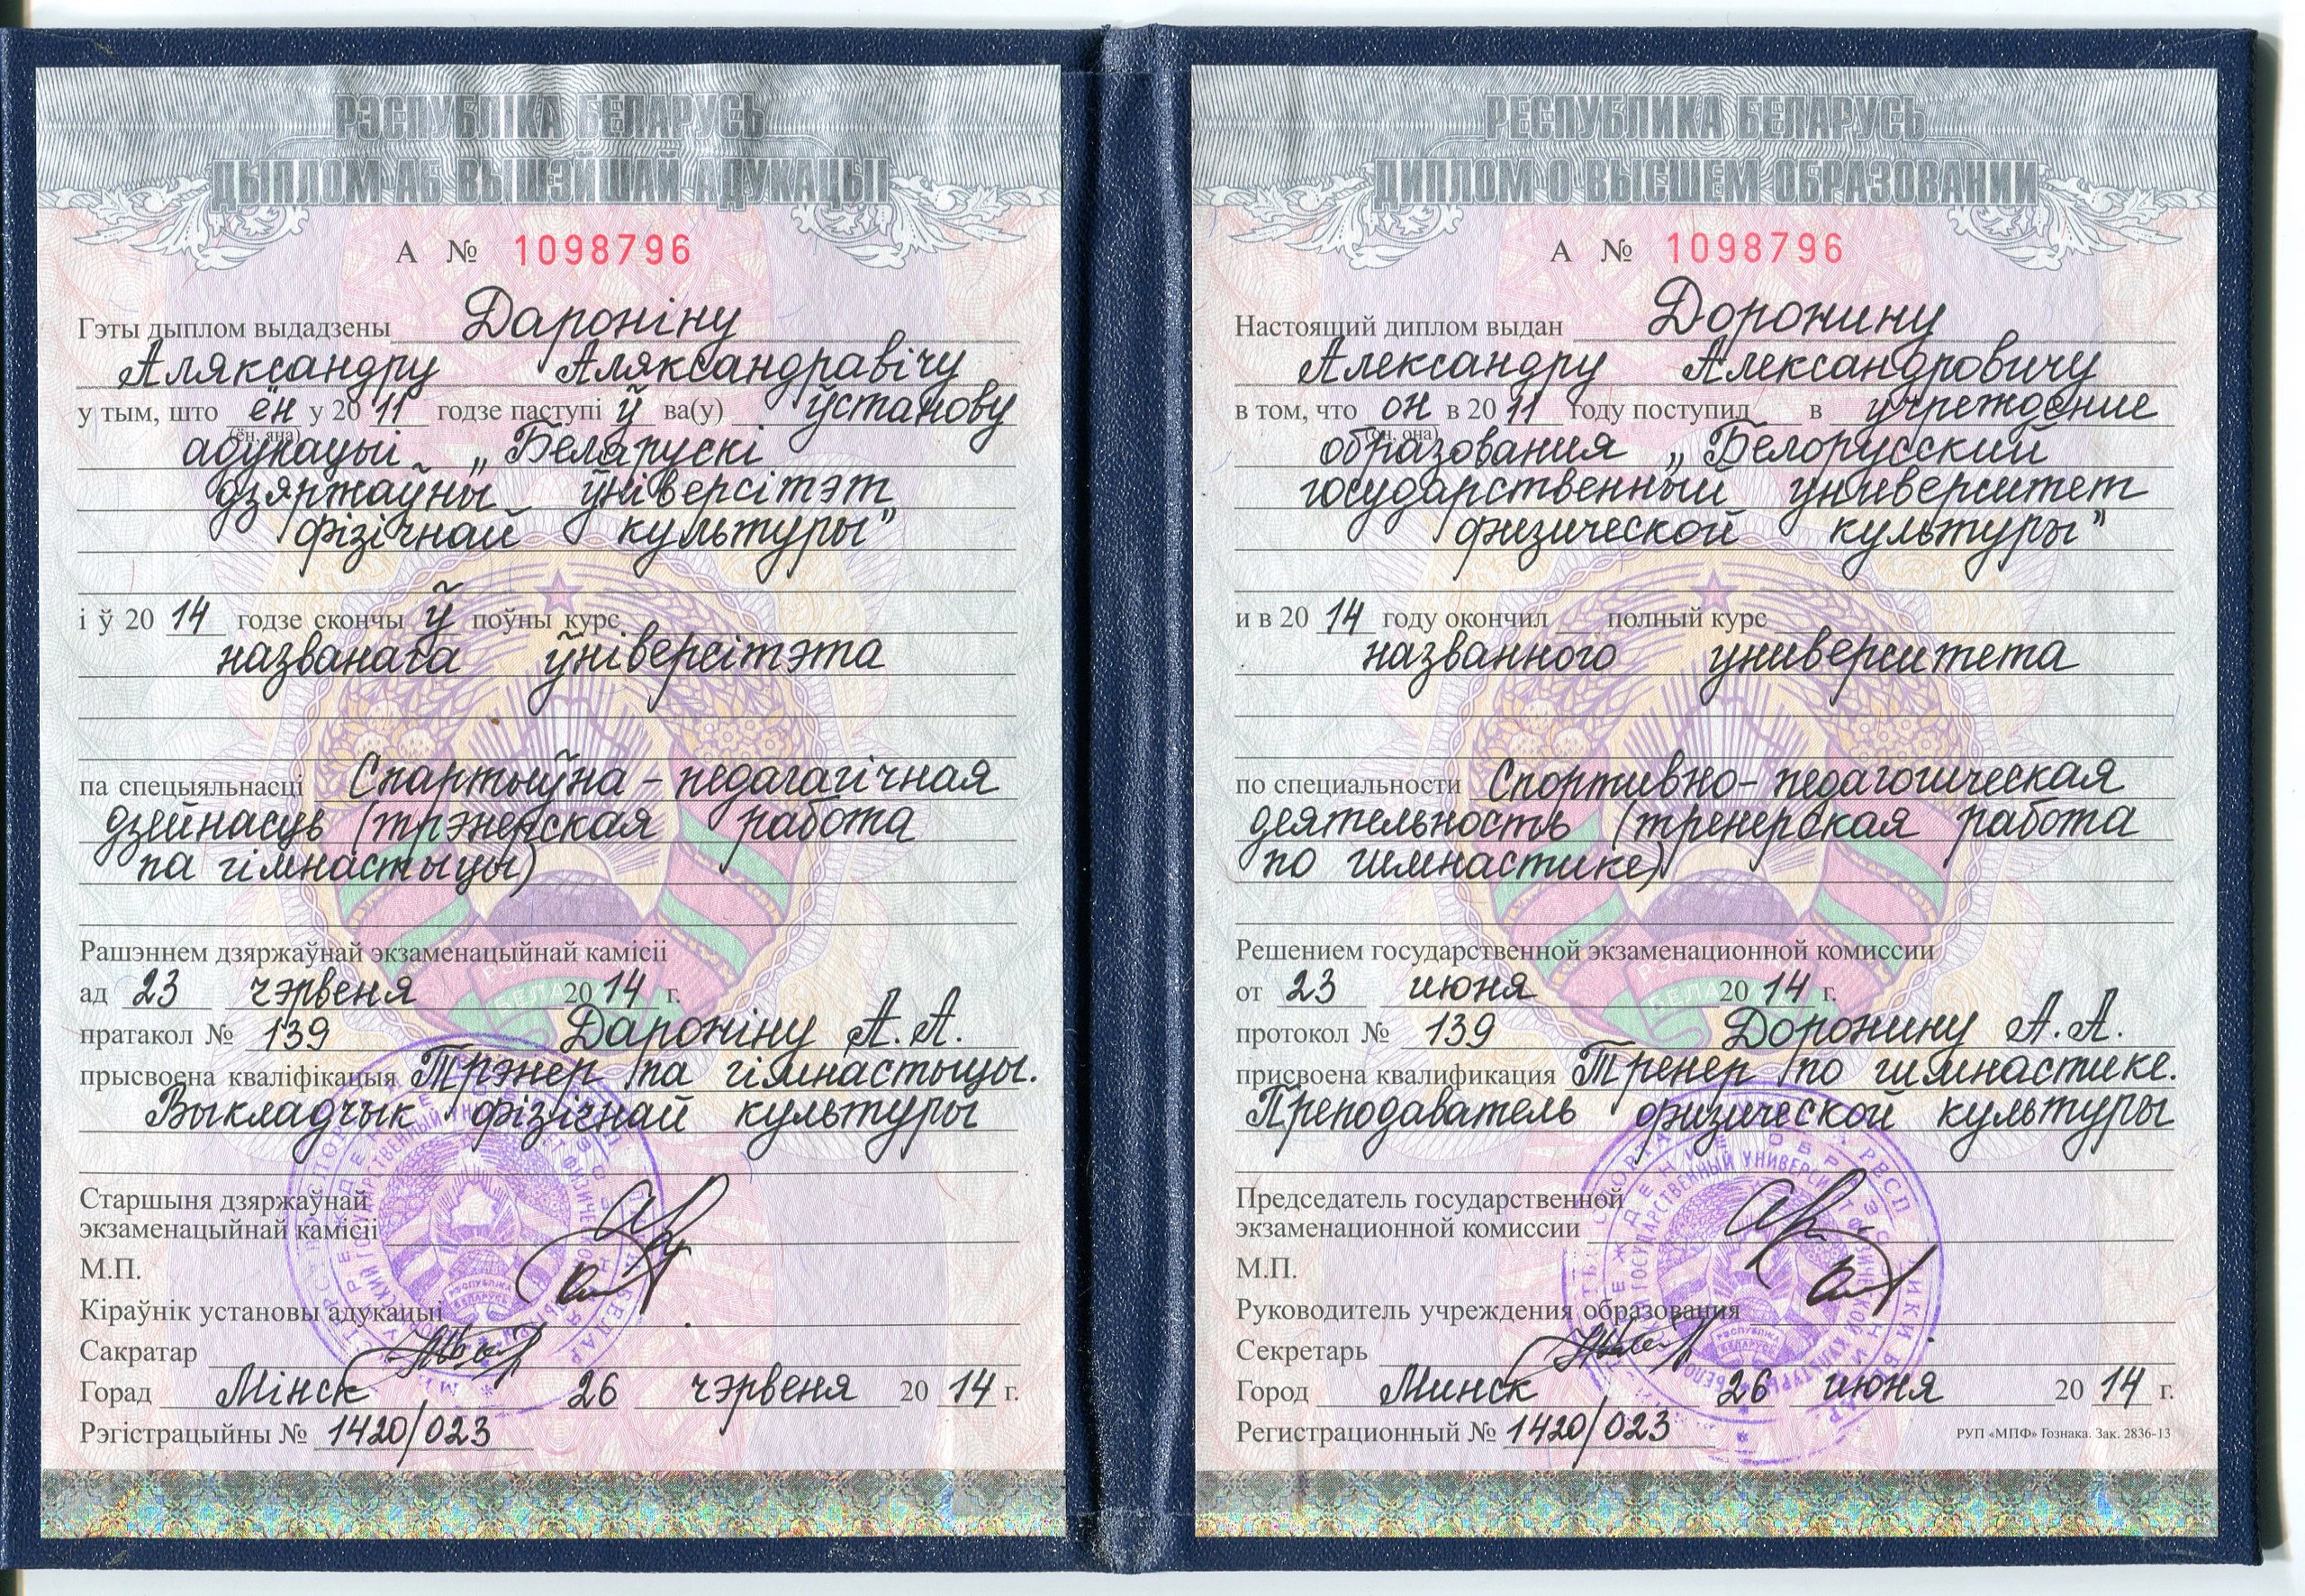 РЭСПУБЛІКА БЕЛАРУСЬ
ДЫПЛОМ АБ ВЫШЭЙШАЙ АДУКАЦЫІ
А № 1098796
Гэты дыплом выдадзены Дароніну
Аляксандру Аляксандравічу
у тым, што ён у 20 11 годзе паступі ў ва(у) ўстанову
(ён, яна)
адукацыі „Беларускі
дзяржаўны ўніверсітэт
фізічнай культуры"
і ў 20 14 годзе скончы ў поўны курс
названага ўніверсітэта
па спецыяльнасці Спартыўна-педагагічная
дзейнасць (трэнерская работа
па гімнастыцы)
Рашэннем дзяржаўнай экзаменацыйнай камісіі
ад 23 чэрвеня 20 14 г.
пратакол № 139 Дароніну А. А.
прысвоена кваліфікацыя Трэнер па гімнастыцы.
Выкладчык фізічнай культуры
Старшыня дзяржаўнай
экзаменацыйнай камісіі
М.П.
Кіраўнік установы адукацыі
Сакратар
Горад Мінск 26 чэрвеня 20 14 г.
Рэгістрацыйны № 1420/023
РЕСПУБЛИКА БЕЛАРУСЬ
ДИПЛОМ О ВЫСШЕМ ОБРАЗОВАНИИ
А № 1098796
Настоящий диплом выдан Доронину
Александру Александровичу
в том, что он в 20 11 году поступил в учреждение
(он, она)
образования „Белорусский
государственный университет
физической культуры"
и в 20 14 году окончил полный курс
названного университета
по специальности Спортивно-педагогическая
деятельность (тренерская работа
по гимнастике)
Решением государственной экзаменационной комиссии
от 23 июня 20 14 г.
протокол № 139 Доронину А. А.
присвоена квалификация Тренер по гимнастике.
Преподаватель физической культуры
Председатель государственной
экзаменационной комиссии
М.П.
Руководитель учреждения образования
Секретарь
Город Минск 26 июня 20 14 г.
Регистрационный № 1420/023
РУП «МПФ» Гознака. Зак. 2836-13